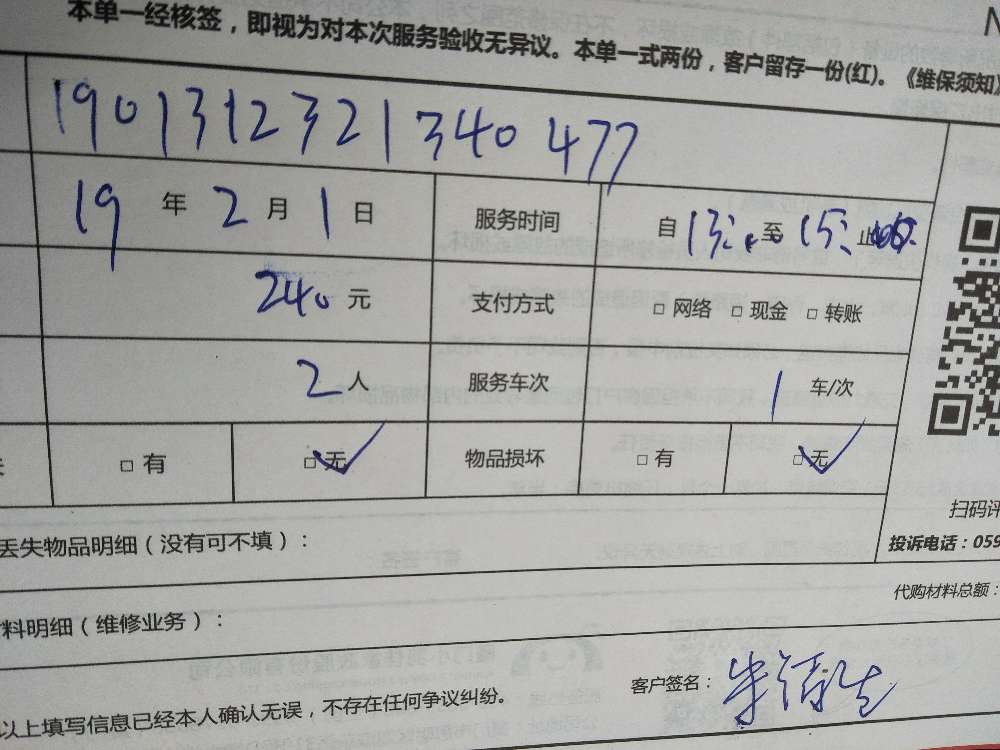 本单一经核签，即视为对本次服务验收无异议。本单一式两份，客户留存一份(红)。《维保须知》
1901312321340477
19 年 2 月 1 日 服务时间 自 13: 至 15: 止
240 元 支付方式 □ 网络 □ 现金 □ 转账
2 人 服务车次 1 车/次
□ 有 □ 无 物品损坏 □ 有 □ 无
扫码评
丢失物品明细（没有可不填）：
投诉电话：059
代购材料总额：
料明细（维修业务）：
客户签名：
以上填写信息已经本人确认无误，不存在任何争议纠纷。